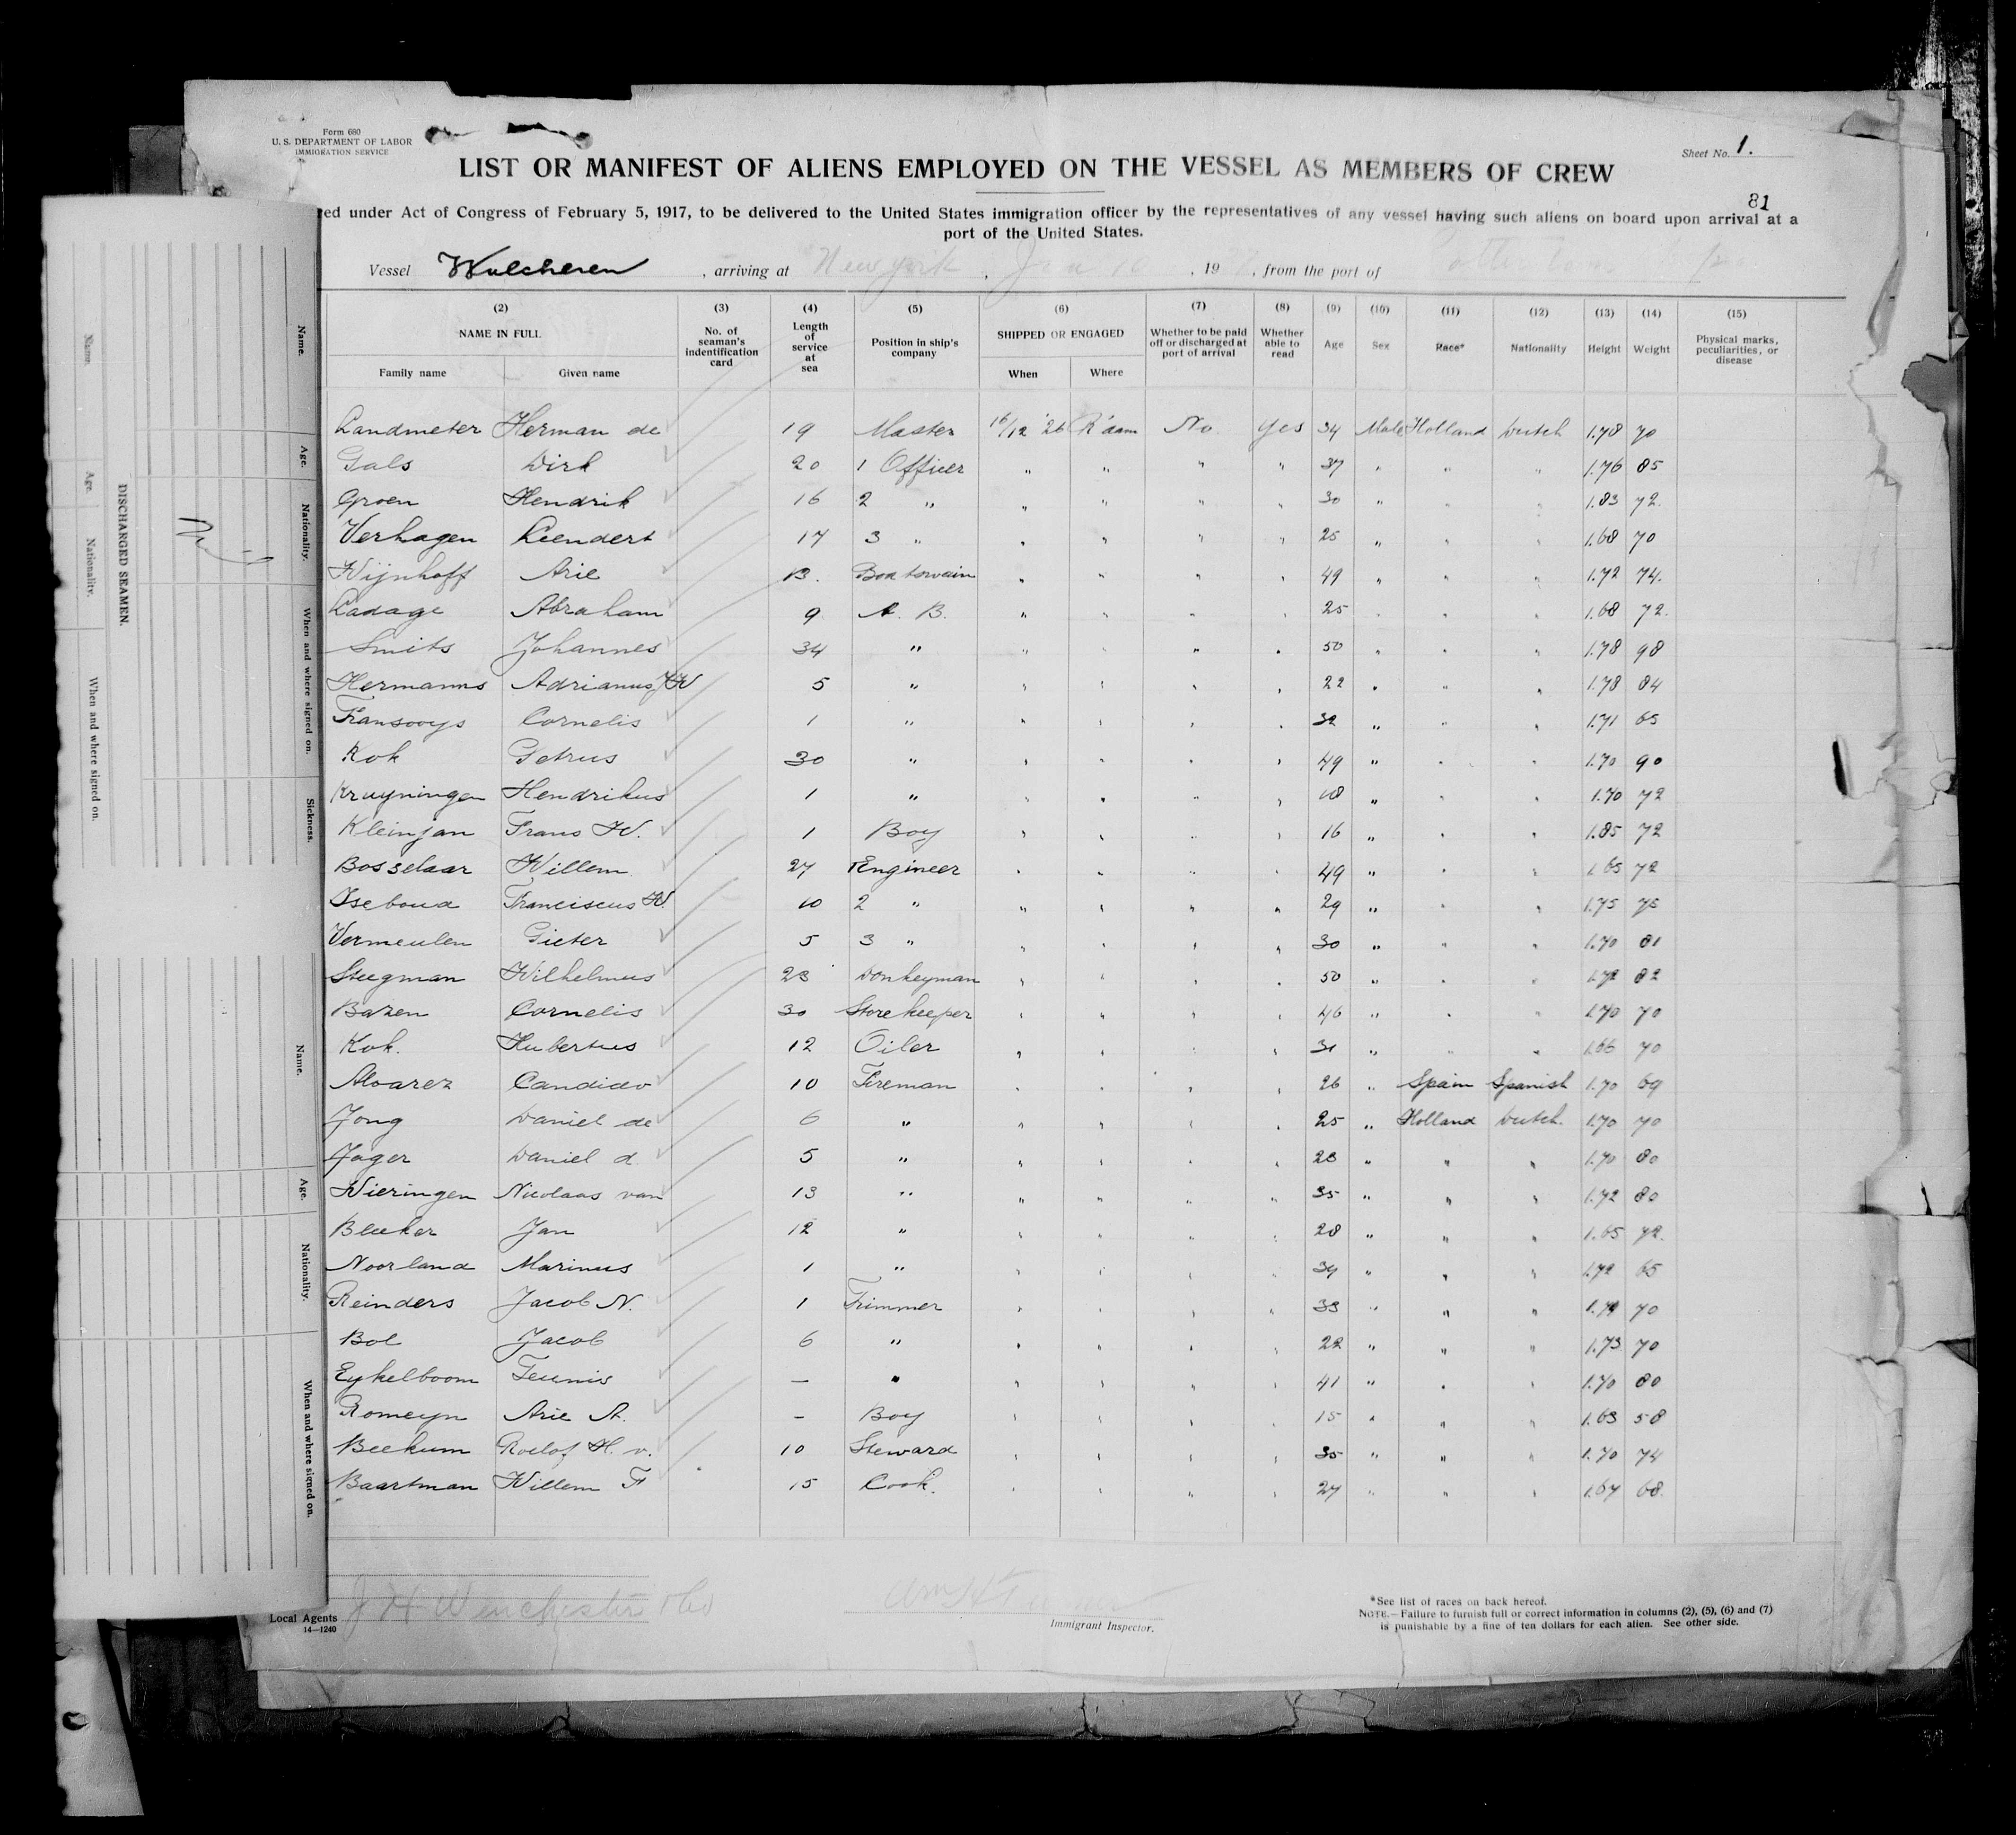 Form 680
U. S. DEPARTMENT OF LABOR
IMMIGRATION SERVICE
Sheet No. 1.
LIST OR MANIFEST OF ALIENS EMPLOYED ON THE VESSEL AS MEMBERS OF CREW
81
ed under Act of Congress of February 5, 1917, to be delivered to the United States immigration officer by the representatives of any vessel having such aliens on board upon arrival at a
port of the United States.
Vessel Walcheren, arriving at New York, Jan 10, 19, from the port of
(2) (3) (4) (5) (6) (7) (8) (9) (10) (11) (12) (13) (14) (15)
NAME IN FULL No. of seaman's indentification card Length of service at sea Position in ship's company SHIPPED OR ENGAGED Whether to be paid off or discharged at port of arrival Whether able to read Age Sex Race* Nationality Height Weight Physical marks, peculiarities, or disease
Family name Given name When Where
Landmeter Herman de 19 Master 16/12 '26 R'dam No Yes 34 Male Holland Dutch 1.78 70
Gals Dirk 20 1 Officer " " " " 37 " " " 1.76 85
Groen Hendrik 16 2 " " " " " 30 " " " 1.83 72.
Verhagen Leendert 17 3 " " " " " 25 " " " 1.68 70
Wijnhoff Arie 13. Boatswain " " " " 49 " " " 1.72 74.
Ladage Abraham 9 A. B. " " " " 25 " " " 1.68 72.
Smits Johannes 34 " " " " " 50 " " " 1.78 98
Hermanns Adrianus 5 " " " " " 22 " " " 1.78 84
Fransooys Cornelis 1 " " " " " 32 " " " 1.71 65
Kok Petrus 30 " " " " " 49 " " " 1.70 90
Kruyningen Hendrikus 1 " " " " " 18 " " " 1.70 72
Kleinjan Frans W. 1 Boy " " " " 16 " " " 1.85 72
Bosselaar Willem 27 1 Engineer " " " " 49 " " " 1.65 72
Iseboud Franciscus W. 10 2 " " " " " 29 " " " 1.75 75
Vermeulen Pieter 5 3 " " " " " 30 " " " 1.70 81
Steegman Wilhelmus 23 Donkeyman " " " " 50 " " " 1.72 82
Bazen Cornelis 30 Storekeeper " " " " 46 " " " 1.70 70
Kok. Hubertus 12 Oiler " " " " 31 " " " 1.66 70
Alvarez Candido 10 Fireman " " " " 26 " Spain Spanish 1.70 69
Jong Daniel de 6 " " " " " 25 " Holland Dutch. 1.70 70
Jager Daniel d 5 " " " " " 28 " " " 1.70 80
Wieringen Nicolaas van 13 " " " " " 35 " " " 1.72 80
Bleeker Jan 12 " " " " " 28 " " " 1.65 72.
Noorland Marinus 1 " " " " " 39 " " " 1.72 65
Reinders Jacob N. 1 Trimmer " " " " 33 " " " 70
Bol Jacob 6 " " " " " 22 " " " 1.73 70
Eykelboom Teunis — " " " " " 41 " " " 1.70 80
Romeyn Arie A. — Boy " " " " 15 " " " 1.63 58
Beekum Roelof H. v. 10 Steward " " " " 35 " " " 1.70 74
Baartman Willem F 15 Cook. " " " " 27 " " " 1.67 68.
J H Winchester & Co
Local Agents
14—1240
Immigrant Inspector.
*See list of races on back hereof.
NOTE.—Failure to furnish full or correct information in columns (2), (5), (6) and (7)
is punishable by a fine of ten dollars for each alien. See other side.
DISCHARGED SEAMEN.
Name. Age. Nationality. When and where signed on. Sickness.
Name. Age. Nationality. When and where signed on.
Nil
Name. Age. Nationality. When and where signed on.